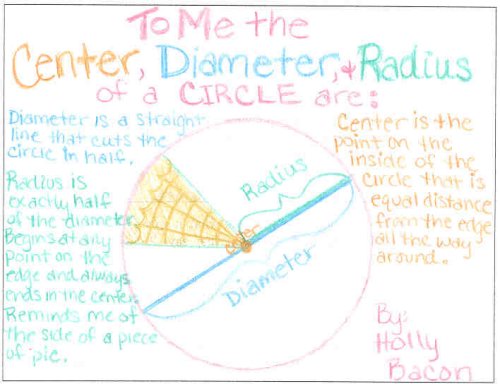 To Me the
Center, Diameter, + Radius
of a CIRCLE are:
Diameter is a straight
line that cuts the
circle in half.
Radius is
exactly half
of the diameter.
Begins at any
point on the
edge and always
ends in the center.
Reminds me of
the side of a piece
of pie.
Radius
center
Diameter
Center is the
point on the
inside of the
circle that is
equal distance
from the edge
all the way
around.
By:
Holly
Bacon